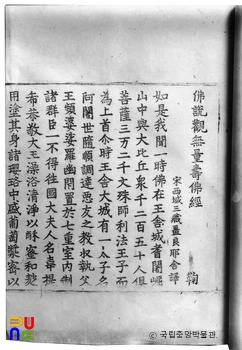 佛說觀無量壽佛經 鞠
宋西域三藏畺良耶舍譯
如是我聞一時佛在王舍城耆闍崛
山中與大比丘衆千二百五十人俱
菩薩三万二千文殊師利法王子而
爲上首尒時王舍大城有一太子名
阿闍世隨順調達惡友之教收執父
王頻婆娑羅幽閉置於七重室內制
諸群臣一不得往國大夫人名韋提
希恭敬大王澡浴清淨以酥蜜和麨
用塗其身諸瓔珞中盛葡萄漿密以
국립중앙박물관